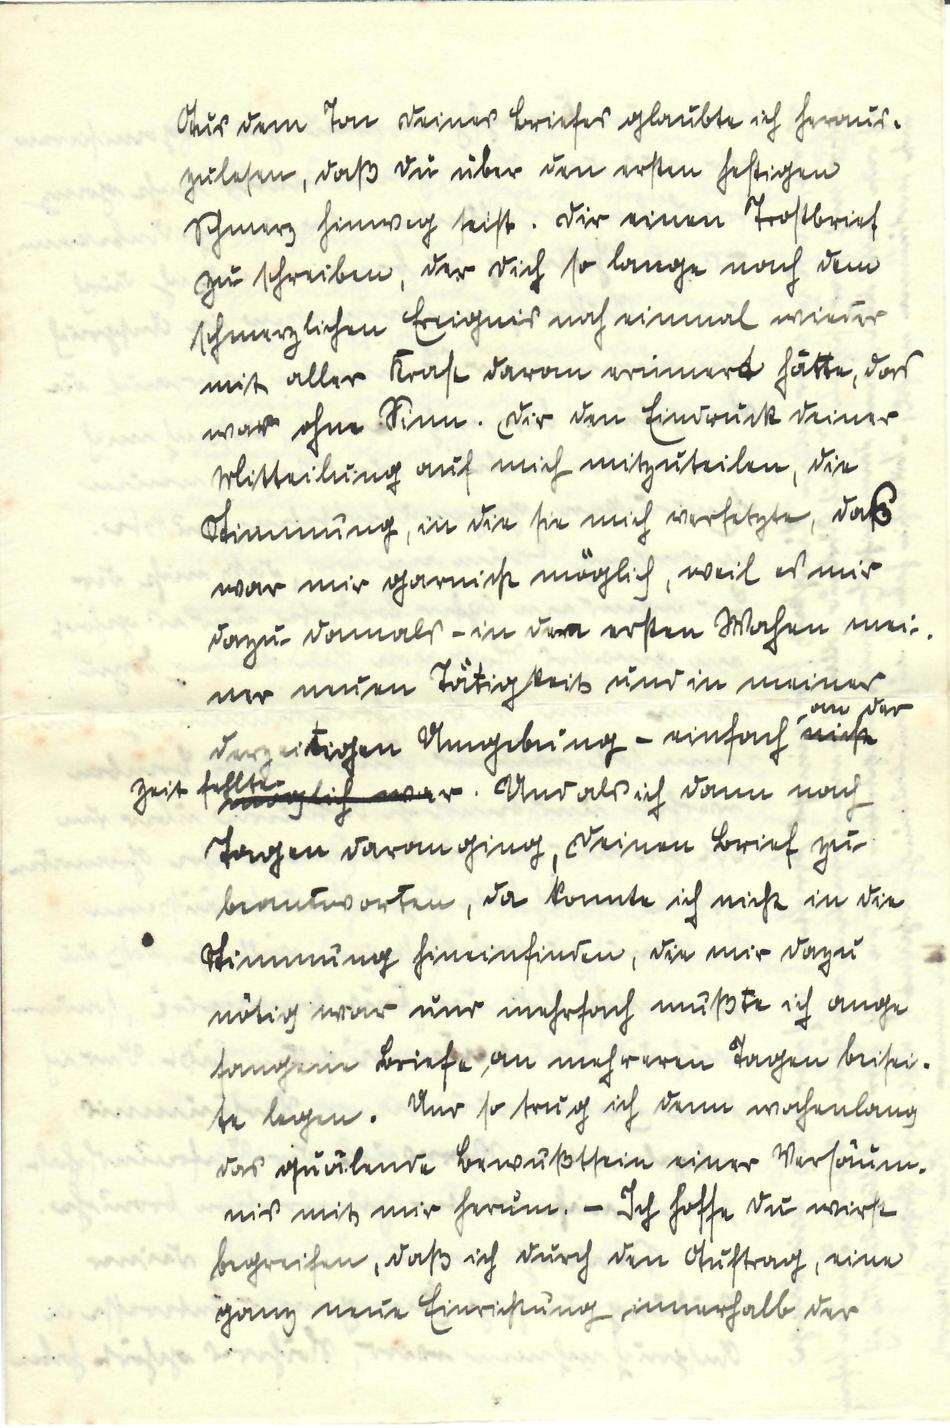 Aus dem Ton deines Briefes glaubte ich heraus-
zulesen, daß du über den ersten heftigen
Schmerz hinweg seist. Dir einen Trostbrief
zu schreiben, der dich so lange nach dem
schmerzlichen Ereignis noch einmal wieder
mit aller Kraft daran erinnert hätte, das
war ohne Sinn. Dir den Eindruck deiner
Mitteilung auf mich mitzuteilen, die
Stimmung, in die sie mich versetzte, daß
war mir garnicht möglich, weil es mir
dazu damals - in den ersten Wochen mei-
ner neuen Tätigkeit und in meiner
derzeitigen Umgebung - einfach nicht an der
Zeit fehlte möglich war. Und als ich dann nach
Tagen daran ging, deinen Brief zu
beantworten, da konnte ich nicht in die
Stimmung hineinfinden, die mir dazu
nötig war und mehrfach mußte ich ange
fangene Briefe an mehreren Tagen beisei-
te legen. Und so trug ich denn wochenlang
das quälende Bewußtsein einer Versäum-
nis mit mir herum. - Ich hoffe du wirst
begreifen, daß ich durch den Auftrag, eine
ganz neue Einrichtung innerhalb der